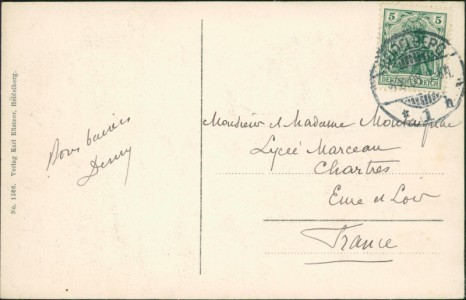 5 5
HEIDELBERG
DEUTSCHES REICH
* 1 h
Monsieur et Madame
Lycée Marceau
Chartres
Eure et Loir
France
Bons baisers
No. 1568. Verlag Karl, Heidelberg.